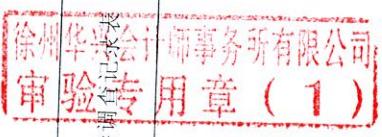 徐州华兴会计师事务所有限公司
审验专用章(1)
调查记录表